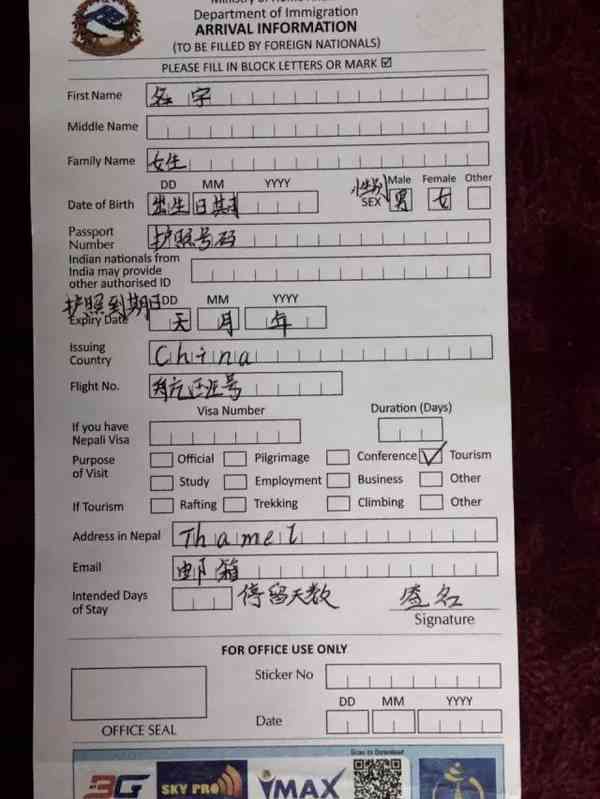 Department of Immigration
ARRIVAL INFORMATION
(TO BE FILLED BY FOREIGN NATIONALS)
PLEASE FILL IN BLOCK LETTERS OR MARK ☑
First Name 名字
Middle Name
Family Name 女生
DD MM YYYY 性别 Male Female Other
Date of Birth 出生日期 SEX 男 女
Passport Number 护照号码
Indian nationals from
India may provide
other authorised ID
护照到期日 DD MM YYYY
Expiry Date 天 月 年
Issuing Country China
Flight No.
Visa Number Duration (Days)
If you have
Nepali Visa
Purpose of Visit Official Pilgrimage Conference ✓ Tourism
Study Employment Business Other
If Tourism Rafting Trekking Climbing Other
Address in Nepal Thamel
Email 邮箱
Intended Days of Stay 停留天数 签名
Signature
FOR OFFICE USE ONLY
Sticker No
DD MM YYYY
OFFICE SEAL Date
Scan to Download
3G SKY PRO iMAX